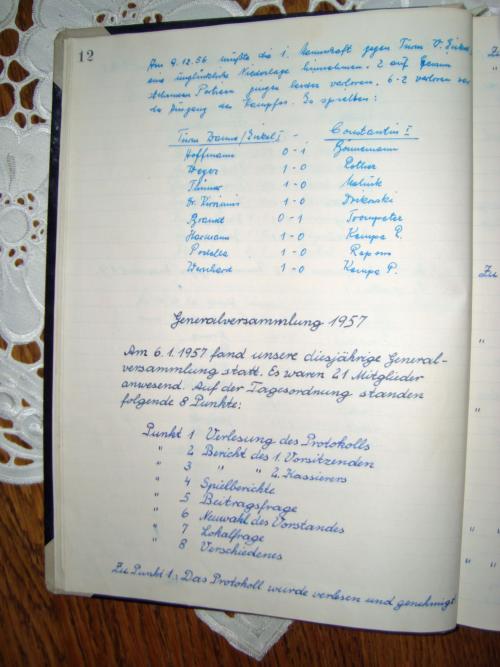 12
Am 9.12.56 mußte die 1. Mannschaft gegen Turm V. Eickel
eine unglückliche Niederlage hinnehmen. 2 auf Gewinn
stehenden Partien gingen leider verloren. 6-2 verloren war
der Ausgang des Kampfes. Es spielten:
Turm Wanne/Eickel I - Constantin I
Hoffmann 0-1 Bönnemann
Weyer 1-0 Rother
Thinner 1-0
Dr. 1-0
Brandt 0-1 Trompeter
Harmann 1-0 Kampa R.
1-0
Wernhard 1-0 Kampa P.
Generalversammlung 1957
Am 6.1.1957 fand unsere diesjährige General-
versammlung statt. Es waren 21 Mitglieder
anwesend. Auf der Tagesordnung standen
folgende 8 Punkte:
Punkt 1 Verlesung des Protokolls
" 2 Bericht des 1. Vorsitzenden
" 3 " " 2. Kassierers
" 4 Spielberichte
" 5 Beitragsfrage
" 6 Neuwahl des Vorstandes
" 7 Lokalfrage
" 8 Verschiedenes
Zu Punkt 1: Das Protokoll wurde verlesen und genehmigt
Zu